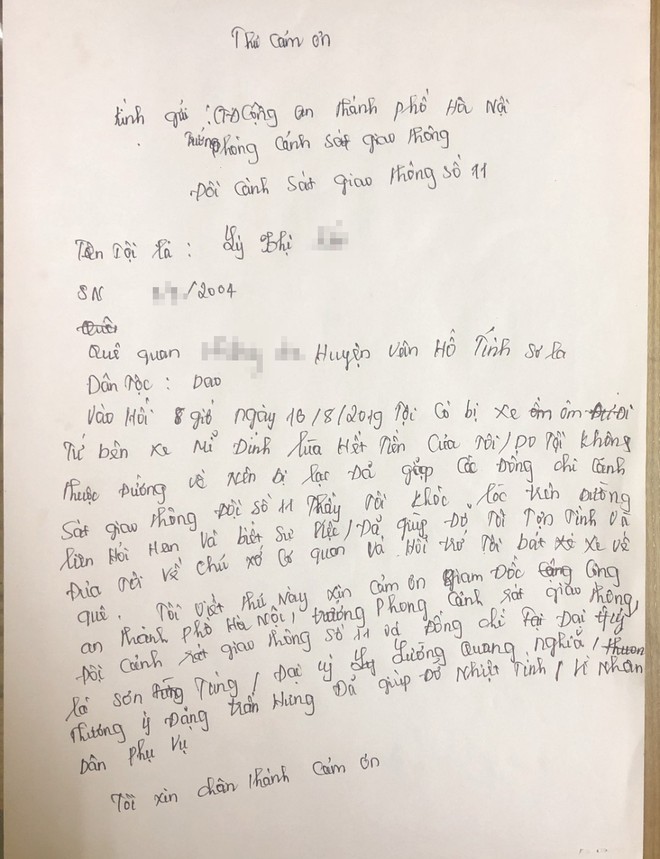 Thư cảm ơn
kính gửi : CATP Cộng an thành phố Hà Nội
Trưởng phòng Cảnh sát giao thông
Đôi Cảnh Sát giao thông số 11
Tên Tội là : Lý Thị
SN /2004
Quê
Quê quan Huyện Vân Hồ Tỉnh Sơ La
Dân Tộc : Dao
Vào Hồi 8 giờ ngày 16/8/2019 Tội Có bị xe ôm ôm Đưa Đi
Từ bên xe Mĩ Đình lừa Hết Tiền Của Tôi/ Do Tội không
thuộc Đường về nên bị lạc Đã gặp Các Đồng chí Cảnh
Sát giao thông Đội số 11 Thấy Tôi khốc lóc trên Đường
liên Hỏi Han và biết Sự Việc/ Đã giúp Đỡ Tôi Tợn Tình và
Đưa Tôi về chú xớ Cơ quan và Hỗi trợ Tôi bắt xe Xe về
quê. Tôi Viết thư này xin Cảm ơn Giam Đốc Công Công
an thành phố Hà Nội/ trưởng Phong Cảnh sát giao thông,
Đội Cảnh sát giao thông số 11 và Đồng chí Tại Đại úy
lã Sơn Tùng Tùng/ Đại uý Lương Quang nghiã/ thươn
thướng ý Đặng trần Hưng Đã giúp Đỡ Nhiệt Tình/ Vì Nhân
Dân Phụ Vụ
Tôi xin chân thành Cảm ơn